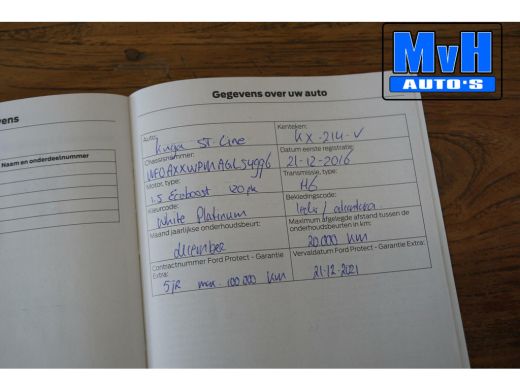 MvH
AUTO'S
Gegevens over uw auto
vens
Naam en onderdeelnummer
Auto:
Kuga ST-Line
Kenteken:
KX-214-V
Chassisnummer:
Datum eerste registratie:
21-12-2016
Motor, type:
1.5 Ecoboost
Transmissie, type:
H6
Kleurcode:
White Platinum
Bekledingscode:
Maand jaarlijkse onderhoudsbeurt:
december
Maximum afgelegde afstand tussen de
onderhoudsbeurten in km:
20.000 KM
Contractnummer Ford Protect - Garantie
Extra:
5 JR max. 100.000 KM
Vervaldatum Ford Protect - Garantie Extra:
21-12-2021